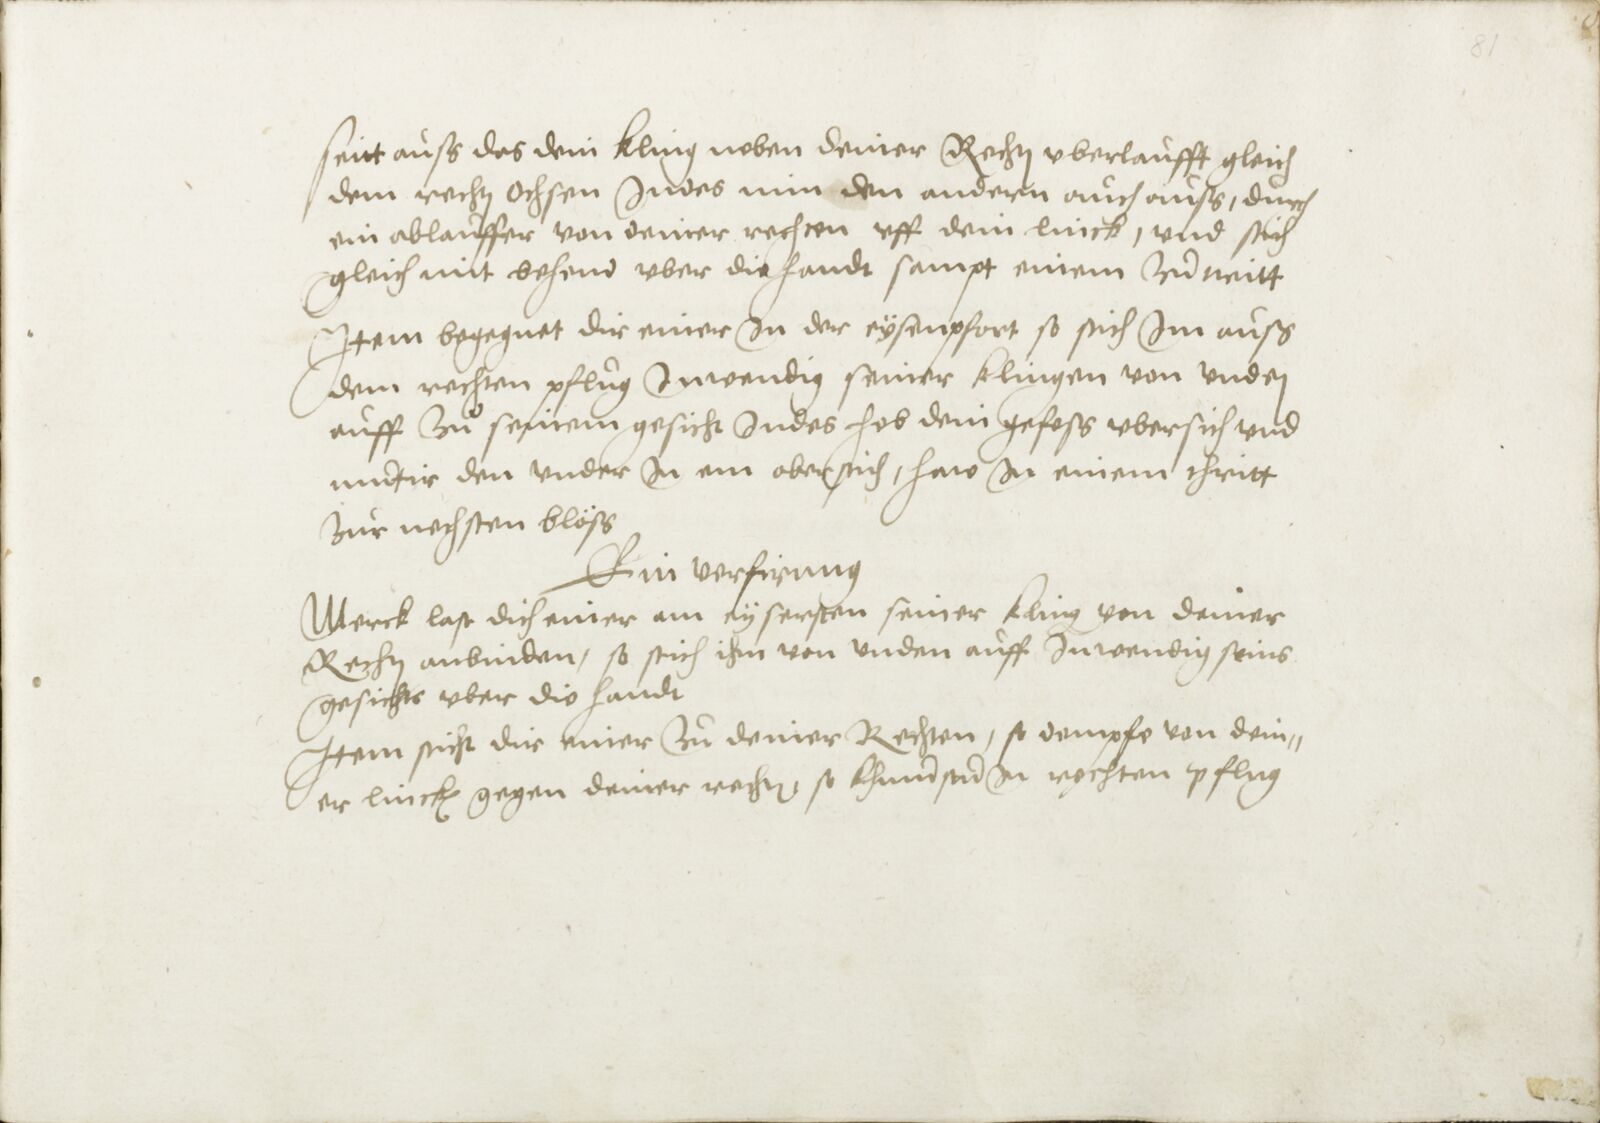 81
seitt auss das dein kling neben deiner Rechten vberlaufft gleich
dem rechten Ochsen Indes nim den andern auch auss, durch
ein ablauffer von deiner rechten vff dein linck, vnd stich
gleich mit behend vber die handt sampt einem zutritt
Item begegnet dir einer in der eysenpfort so stich Im auss
dem rechten pflug Inwendig seiner klingen von vnden
auff zu seinem gesicht Indes heb dein gefess vbersich vnd
mutir den vnder In ein oberstich, haw In einem schritt
zur nechsten blöss
Ein verfirung
Merck last dich einer am eysersten seiner kling von deiner
Rechten anbinden, so stich ihm von vnden auff Inwendig seins
gesichts vber die handt
Item sticht dir einer zu deiner Rechten, so dempfe von dein„
er linck gegen deiner rechten, so khumstu In rechten pflug